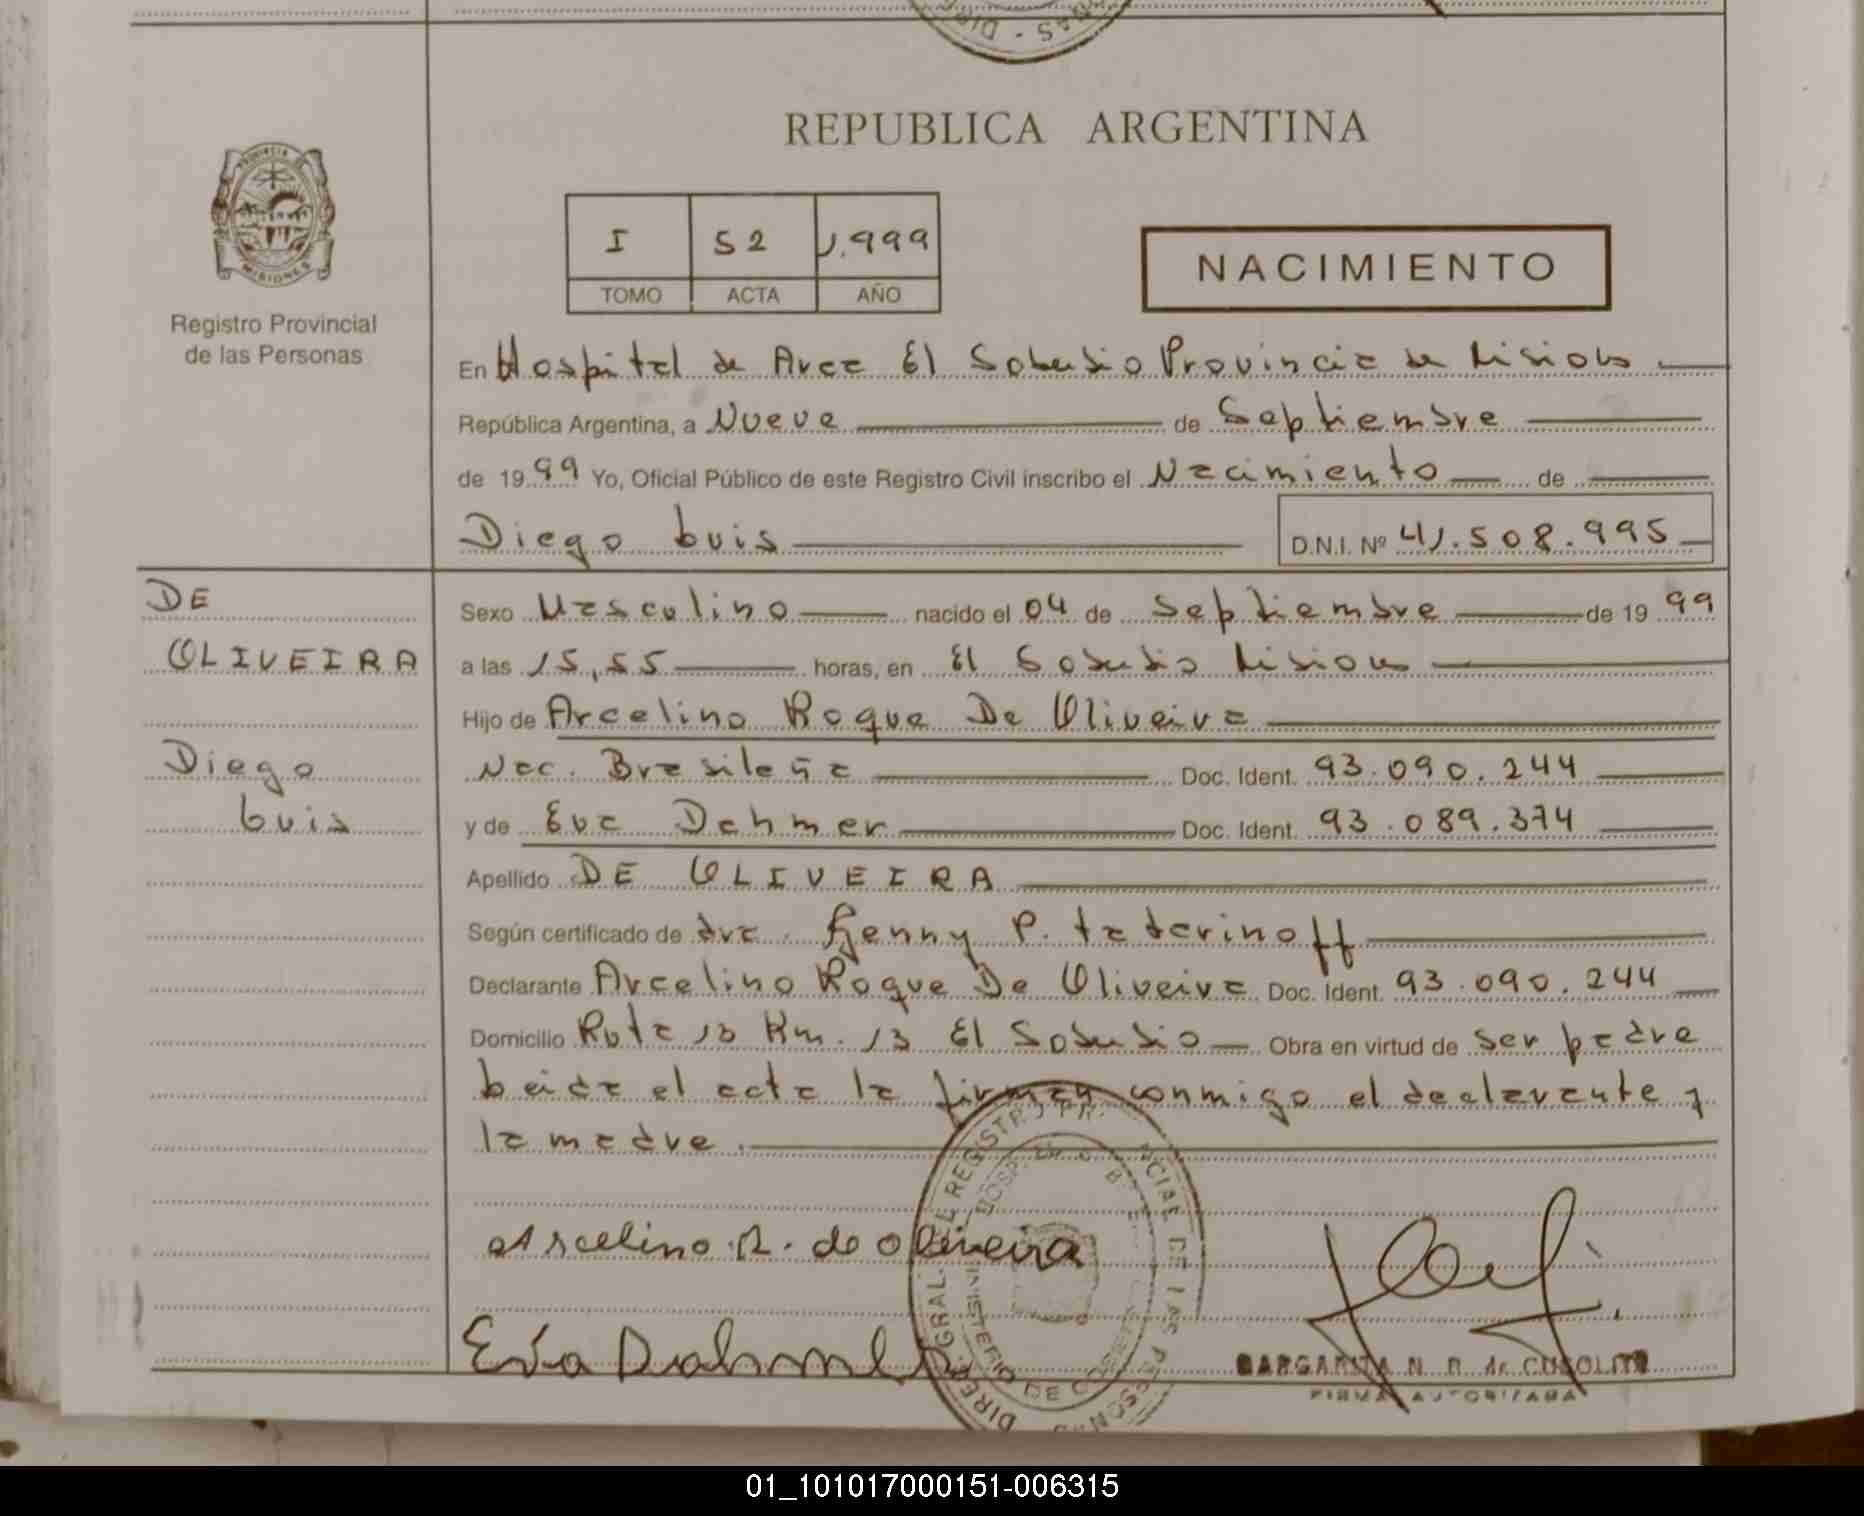 REPUBLICA ARGENTINA
PROVINCIA DE
MISIONES
Registro Provincial
de las Personas
I 52 1.999
TOMO ACTA AÑO
NACIMIENTO
En Hospital de Area El Soberbio Provincia de Misiones
República Argentina, a Nueve de Septiembre
de 1999 Yo, Oficial Público de este Registro Civil inscribo el Nacimiento de
Diego Luis D.N.I. Nº 41.508.995
DE
OLIVEIRA
Diego
Luis
Sexo Masculino nacido el 04 de Septiembre de 1999
a las 15,55 horas, en El Soberbio Misiones
Hijo de Arcelino Roque De Oliveira
Nac. Brasileña Doc. Ident. 93.090.244
y de Eva Dahmer Doc. Ident. 93.089.374
Apellido DE OLIVEIRA
Según certificado de dra. Henny P. tatarinoff
Declarante Arcelino Roque De Oliveira Doc. Ident. 93.090.244
Domicilio Ruta 13 Km. 13 El Soberbio Obra en virtud de ser padre
leida el acta la firman conmigo el declarante y
la madre.
Arcelino R. de oliveira
Eva Dahmer
MARGARITA N. R. de CUSOLITO
FIRMA AUTORIZADA
01_101017000151-006315